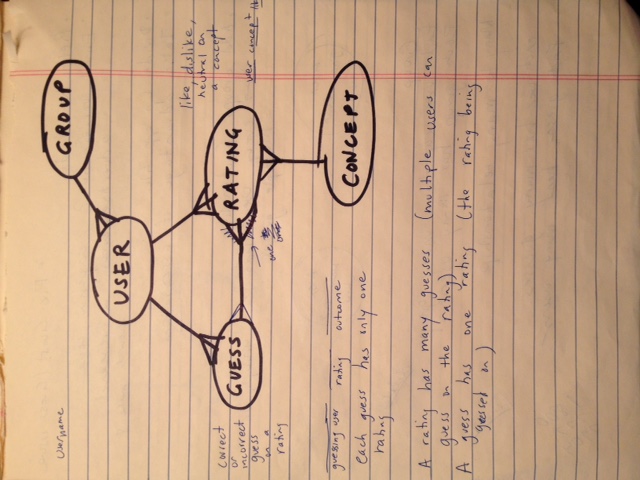 username
GROUP
USER
like, dislike,
neutral on
a concept
correct
or
incorrect
guess
on a
rating
GUESS
RATING
user concept
one
one
CONCEPT
guessing user rating outcome
each guess has only one
rating
A rating has many guesses (multiple users can
guess on the rating)
A guess has one rating (the rating being
guessed on)